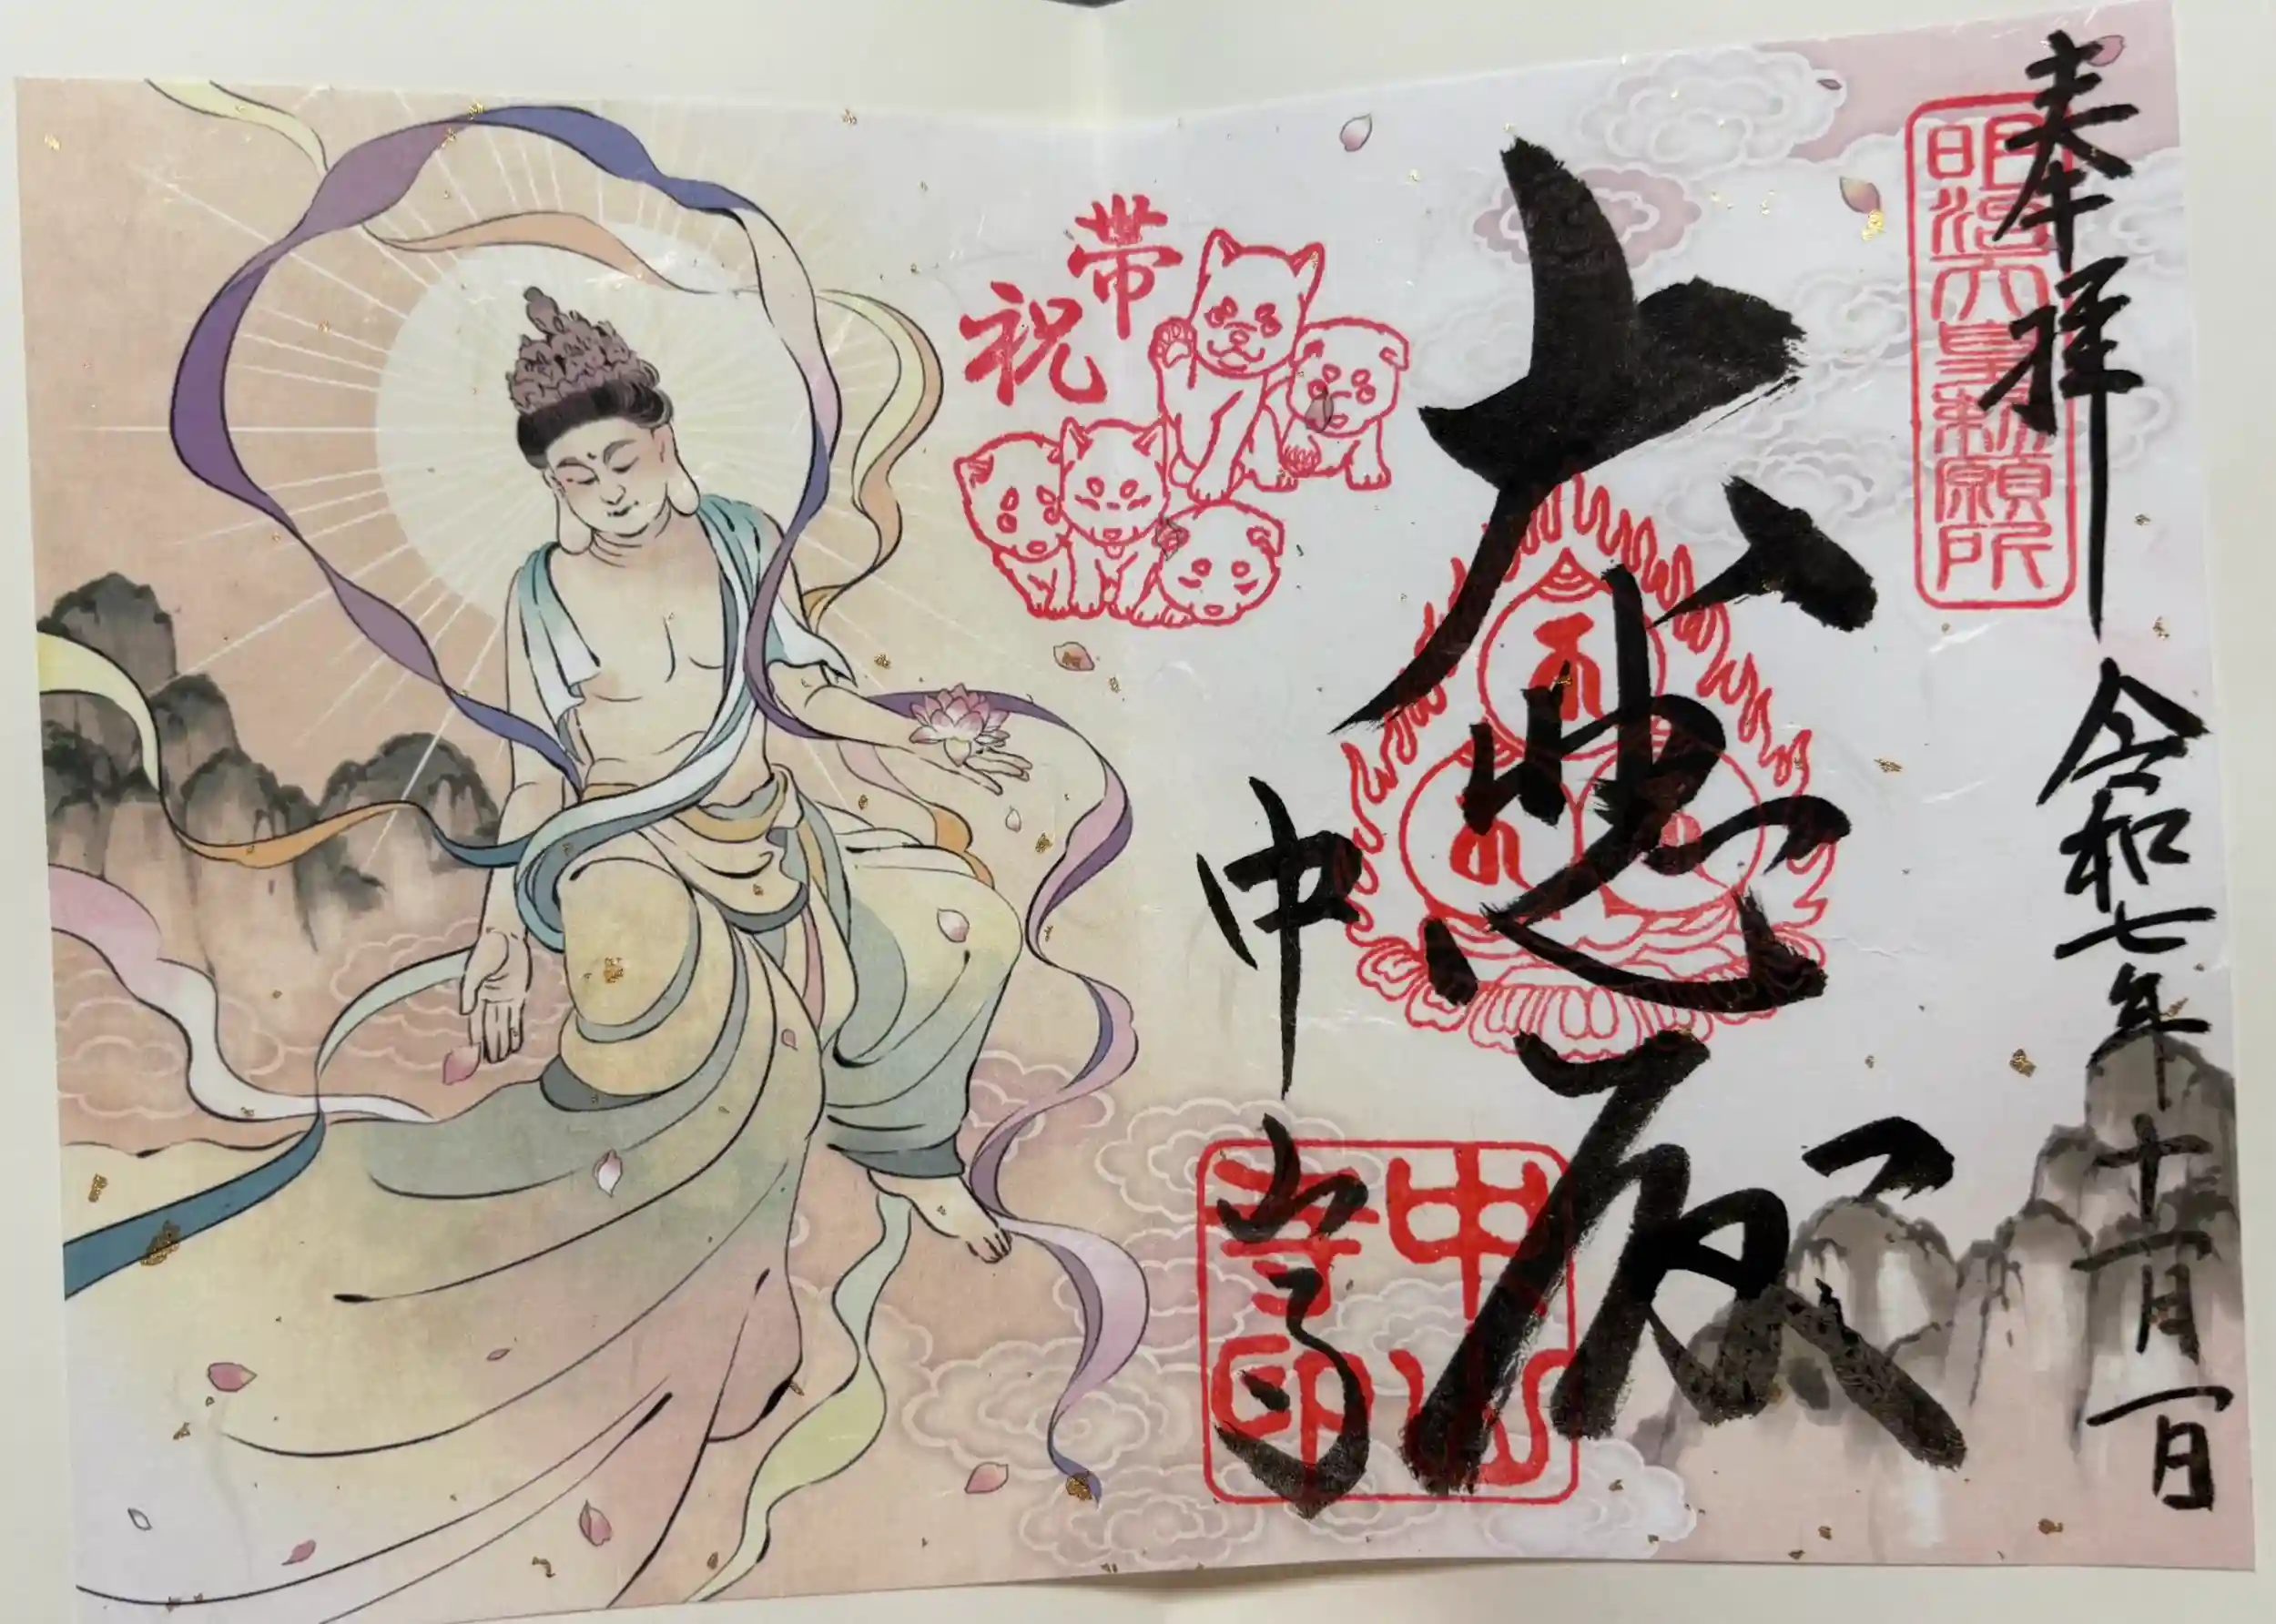 奉拝
令和七年十一月一日
明治天皇勅願所
大悲殿
帯
祝
中山寺
中山
寺印